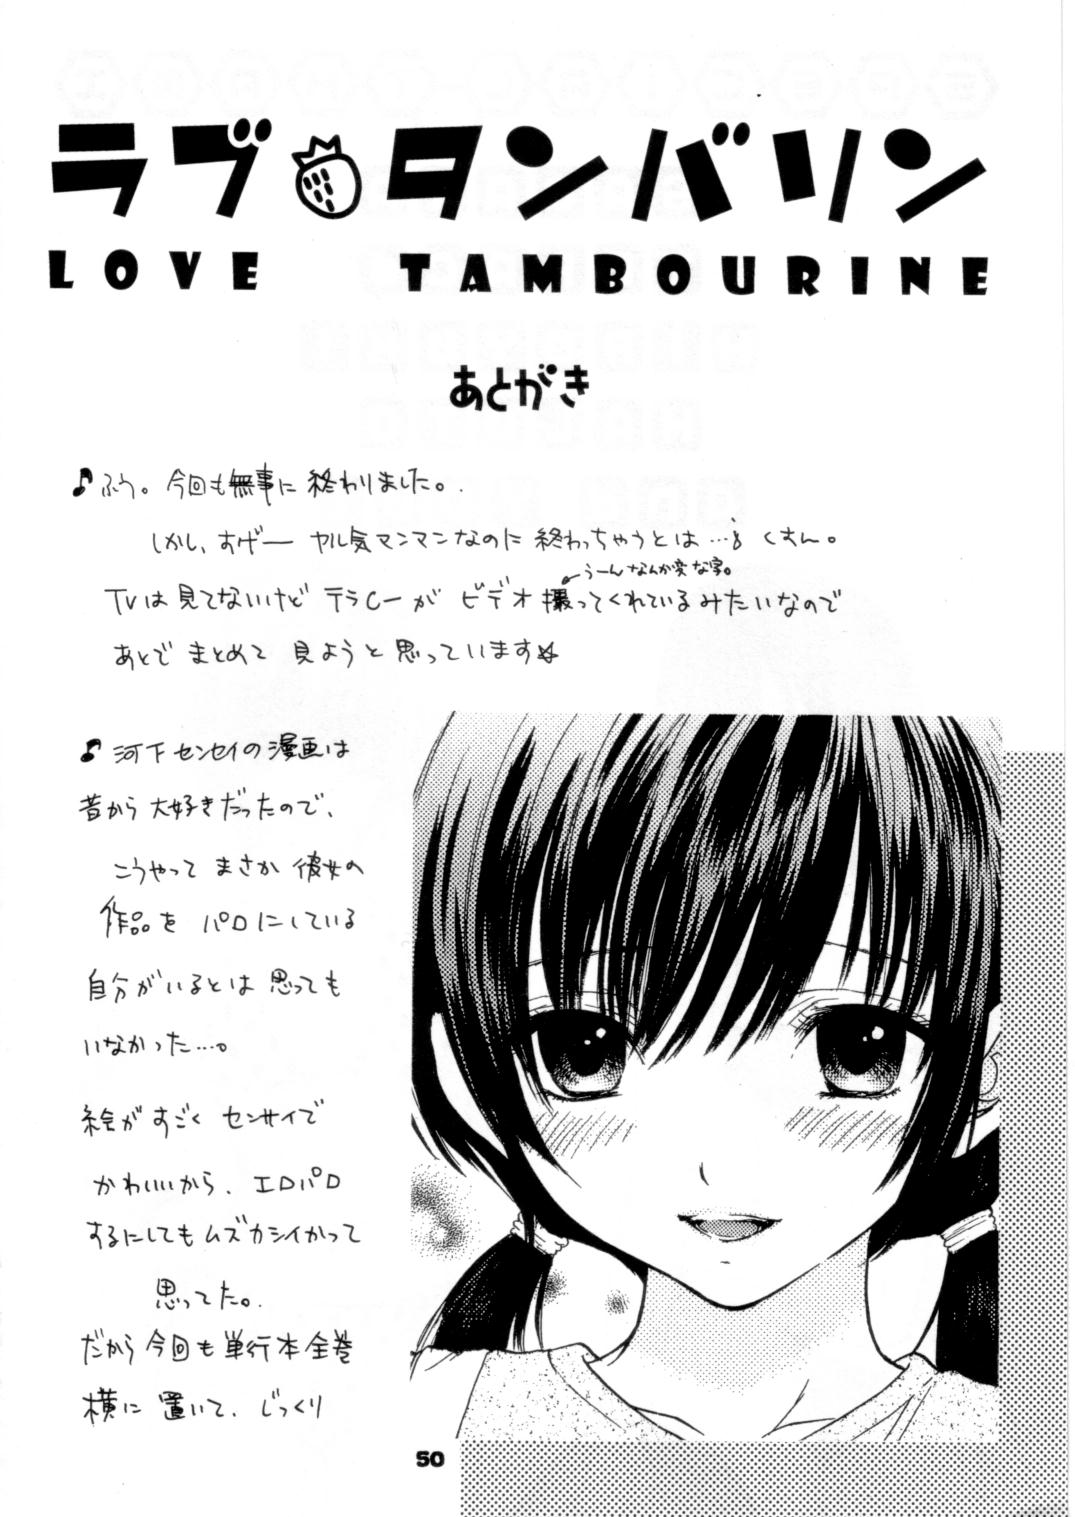 ラブ タンバリン
LOVE TAMBOURINE
あとがき
♪ふう。今回も無事に終わりました。
しかし、すげーヤル気マンマンなのに終わっちゃうとは…くすん。
うーんなんか変な字。
TVは見てないけどテラCーがビデオ撮ってくれているみたいなので
あとでまとめて見ようと思っています☆
♪河下センセイの漫画は
昔から大好きだったので、
こうやってまさか彼女の
作品をパロにしている
自分がいるとは思っても
いなかった…。
絵がすごくセンサイで
かわいいから、エロパロ
するにしてもムズカシイかって
思ってた。
だから今回も単行本全巻
横に置いて、じっくり
50